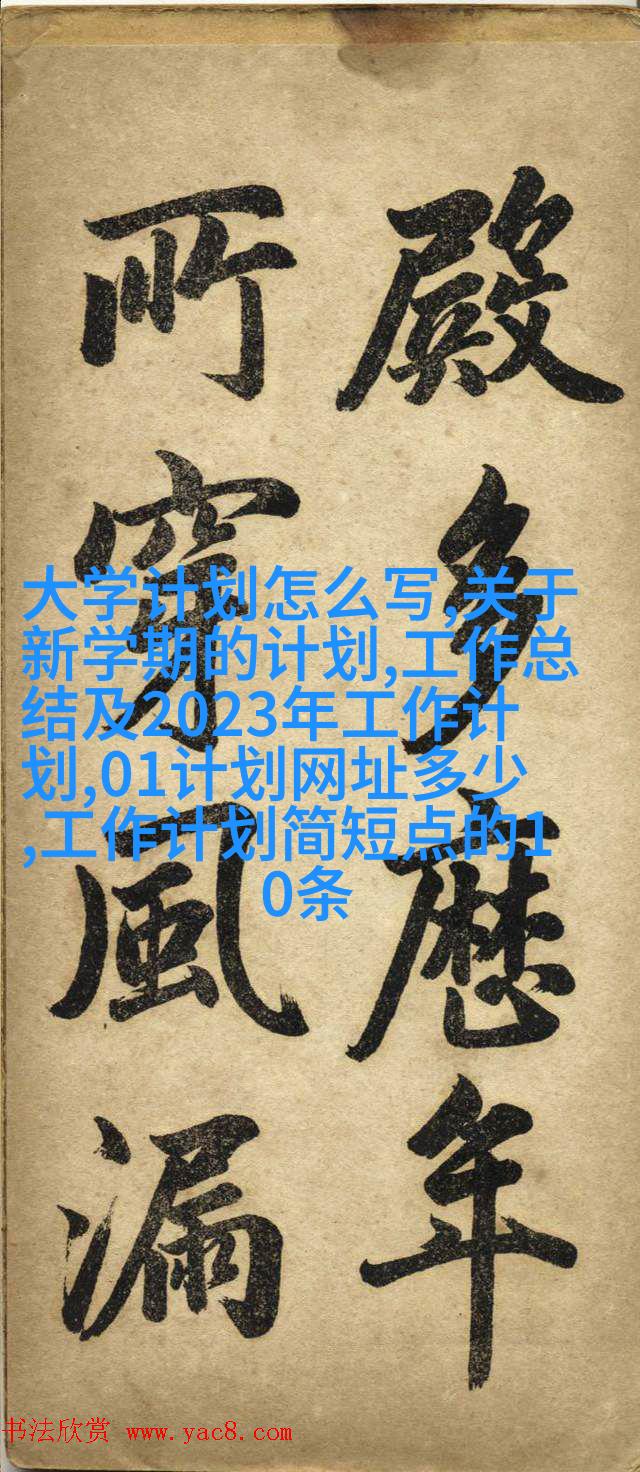 殿多歷年
所穿風漏
大学计划怎么写,关于
新学期的计划,工作总
结及2023年工作计
划,01计划网址多少
,工作计划简短点的1
0条
书法欣赏 www.yac8.com